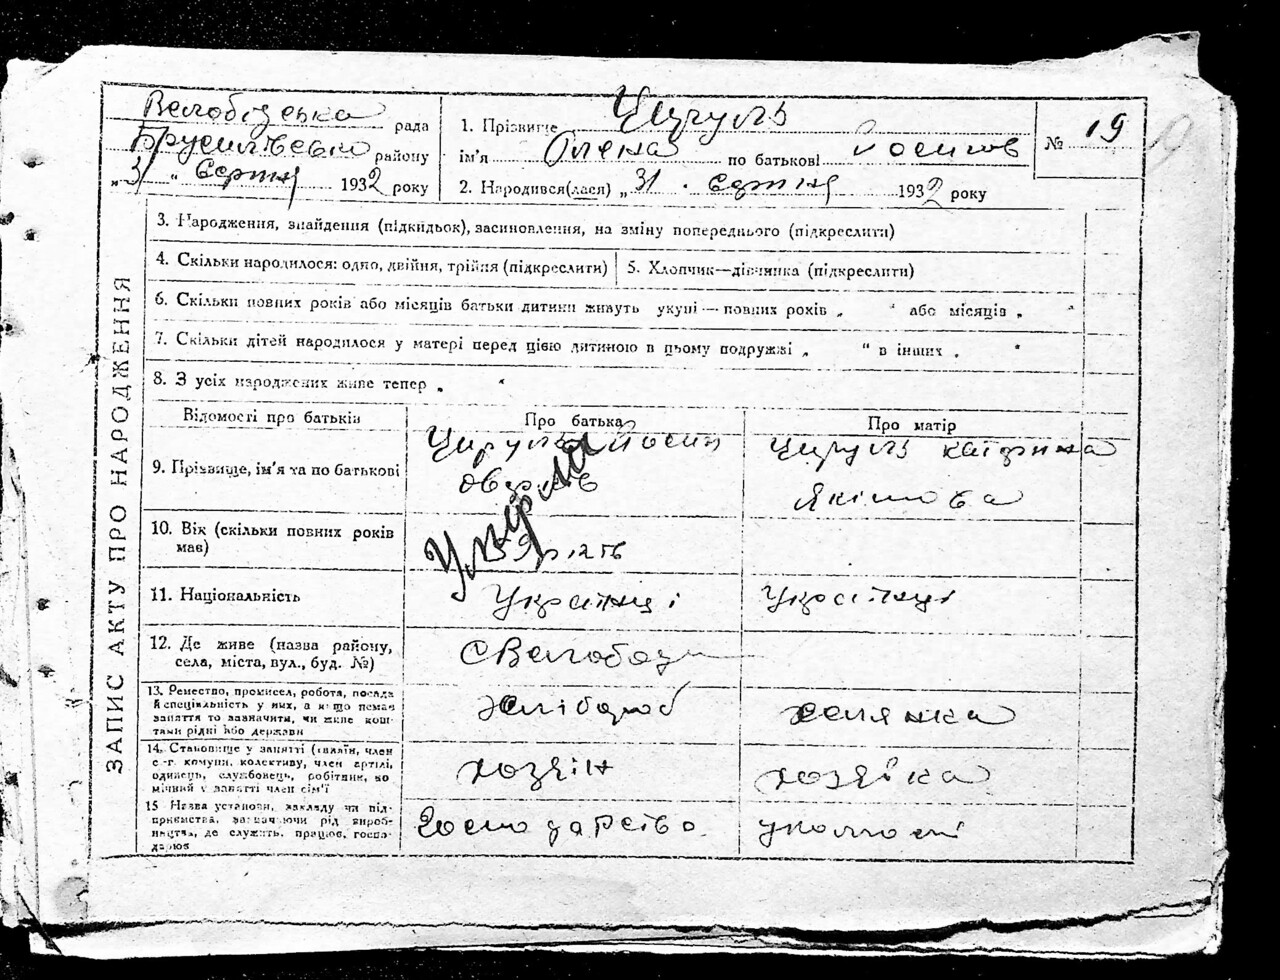 рада
району
„31 " Серпня 1932 року
1. Прізвище Цируль
ім'я Олена по батькові Йосипов
2. Народився(лася) „31 . Серпня 1932 року
№ 19
ЗАПИС АКТУ ПРО НАРОДЖЕННЯ
3. Народження, знайдення (підкидьок), засиновлення, на зміну попереднього (підкреслити)
4. Скільки народилося: одно, двійня, трійня (підкреслити)
5. Хлопчик—дівчинка (підкреслити)
6. Скільки повних років або місяців батьки дитини живуть укупі — повних років „ " або місяців „ "
7. Скільки дітей народилося у матері перед цією дитиною в цьому подружжі „ " в інших „ "
8. З усіх народжених живе тепер „ "
Відомості про батьків
Про батька
Про матір
9. Прізвище, ім'я та по батькові
Цируль Йосип
Цируль Катрина
Якімова
Умерла
10. Вік (скільки повних років
має)
11. Національність
Українці
Українці
12. Де живе (назва району,
села, міста, вул., буд. №)
13. Ремество, промисел, робота, посада
й спеціяльність у них, а якщо немає
заняття то зазначити, чи живе кош-
тами рідні або держави
Хлібороб
селянка
14. Становище у занятті (хазяїн, член
с.-г. комуни, колективу, член артілі,
одинець, службовець, робітник, до
мічний у занятті член сім'ї
хозяін
хозяйка
15 Назва установи, закладу чи під-
приємства, зазначаючи рід вироб-
ництва, де служить, працює, госпо-
дарює
Господарство